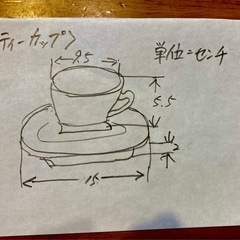 ティーカップ
9.5
単位=センチ
5.5
2
15